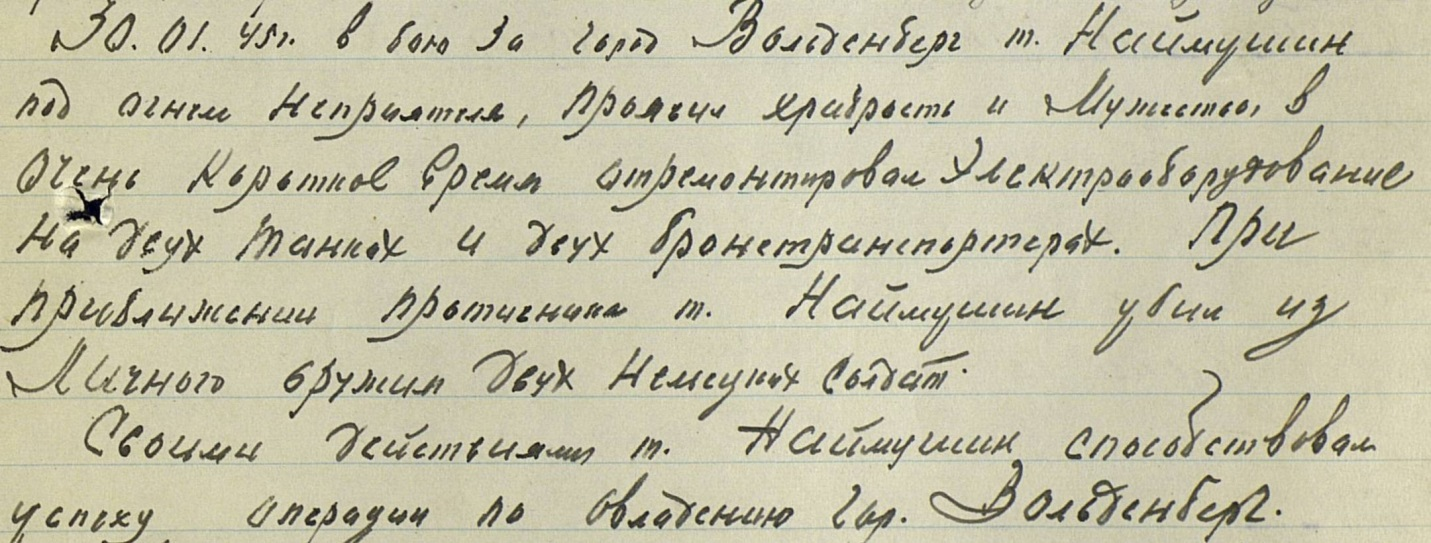 30.01.45г. в бою за город Вольденберг т. Наймушин
под огнем неприятеля, проявил храбрость и мужество, в
очень короткое время отремонтировал электрооборудование
на двух танках и двух бронетранспортерах. При
приближении противника т. Наймушин убил из
личного оружия двух немецких солдат.
Своими действиями т. Наймушин способствовал
успеху операции по овладению гор. Вольденберг.